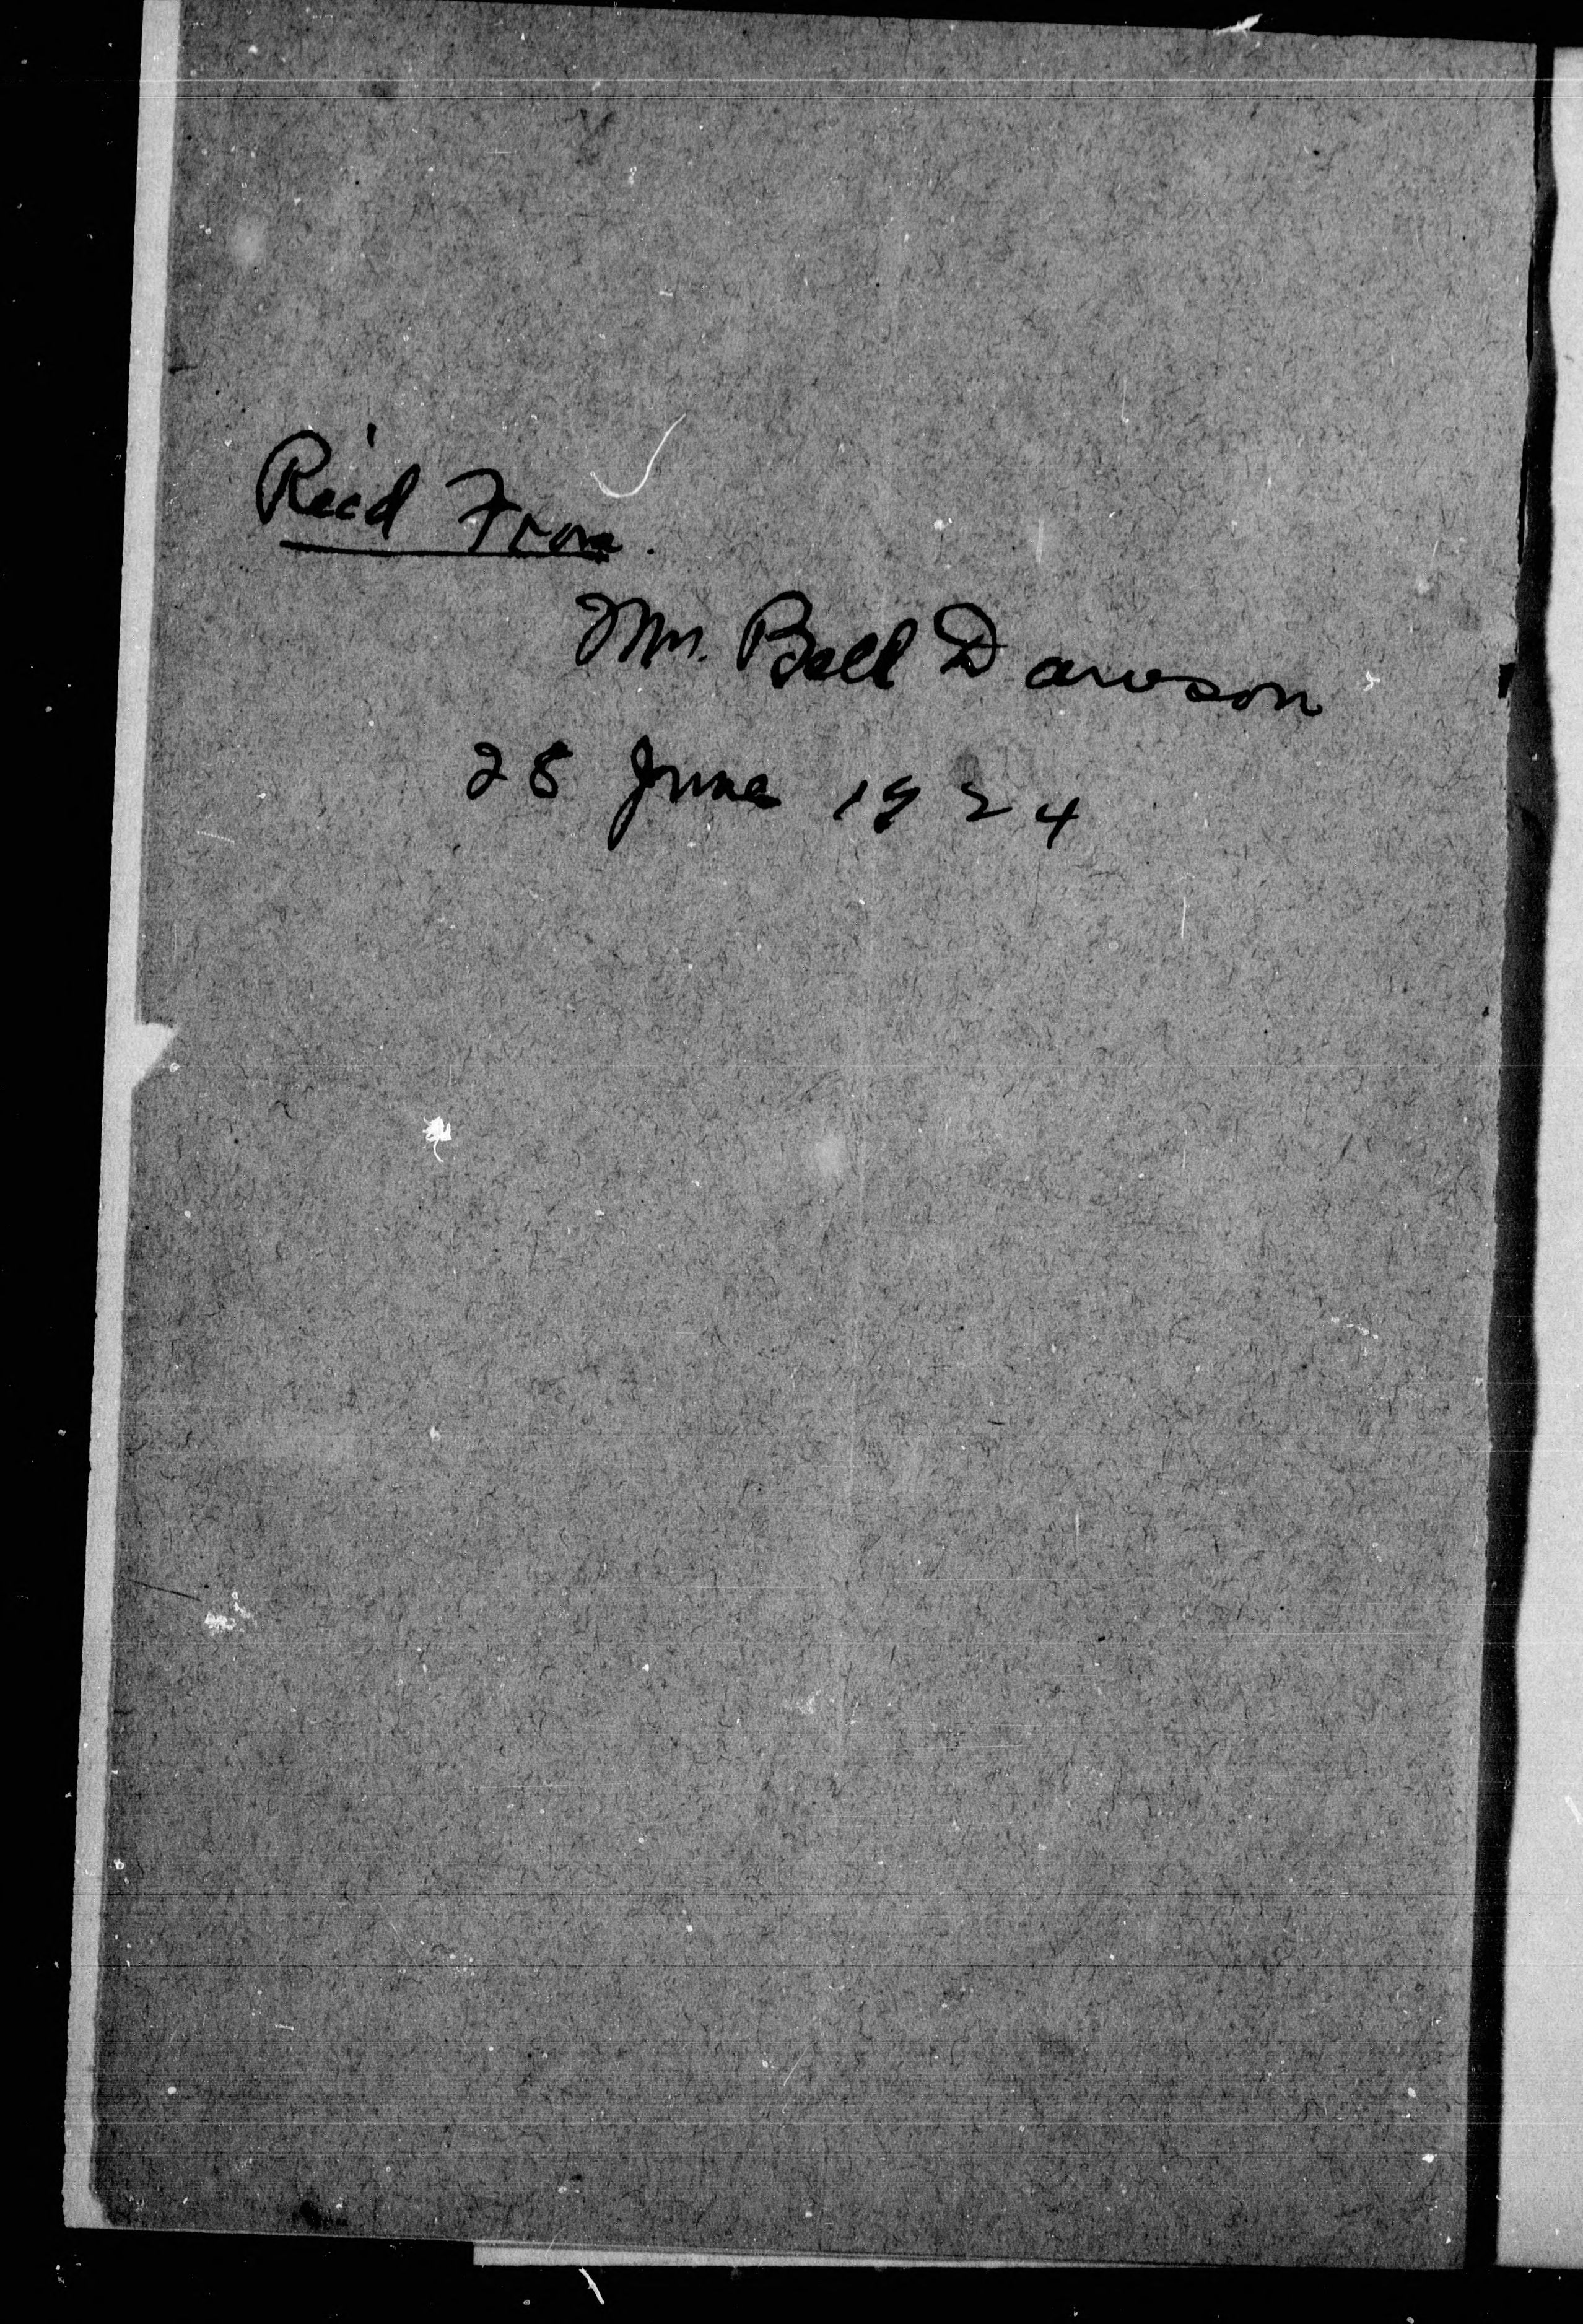 Rec'd From.
Mr. Bell Dawson
28 June 1924